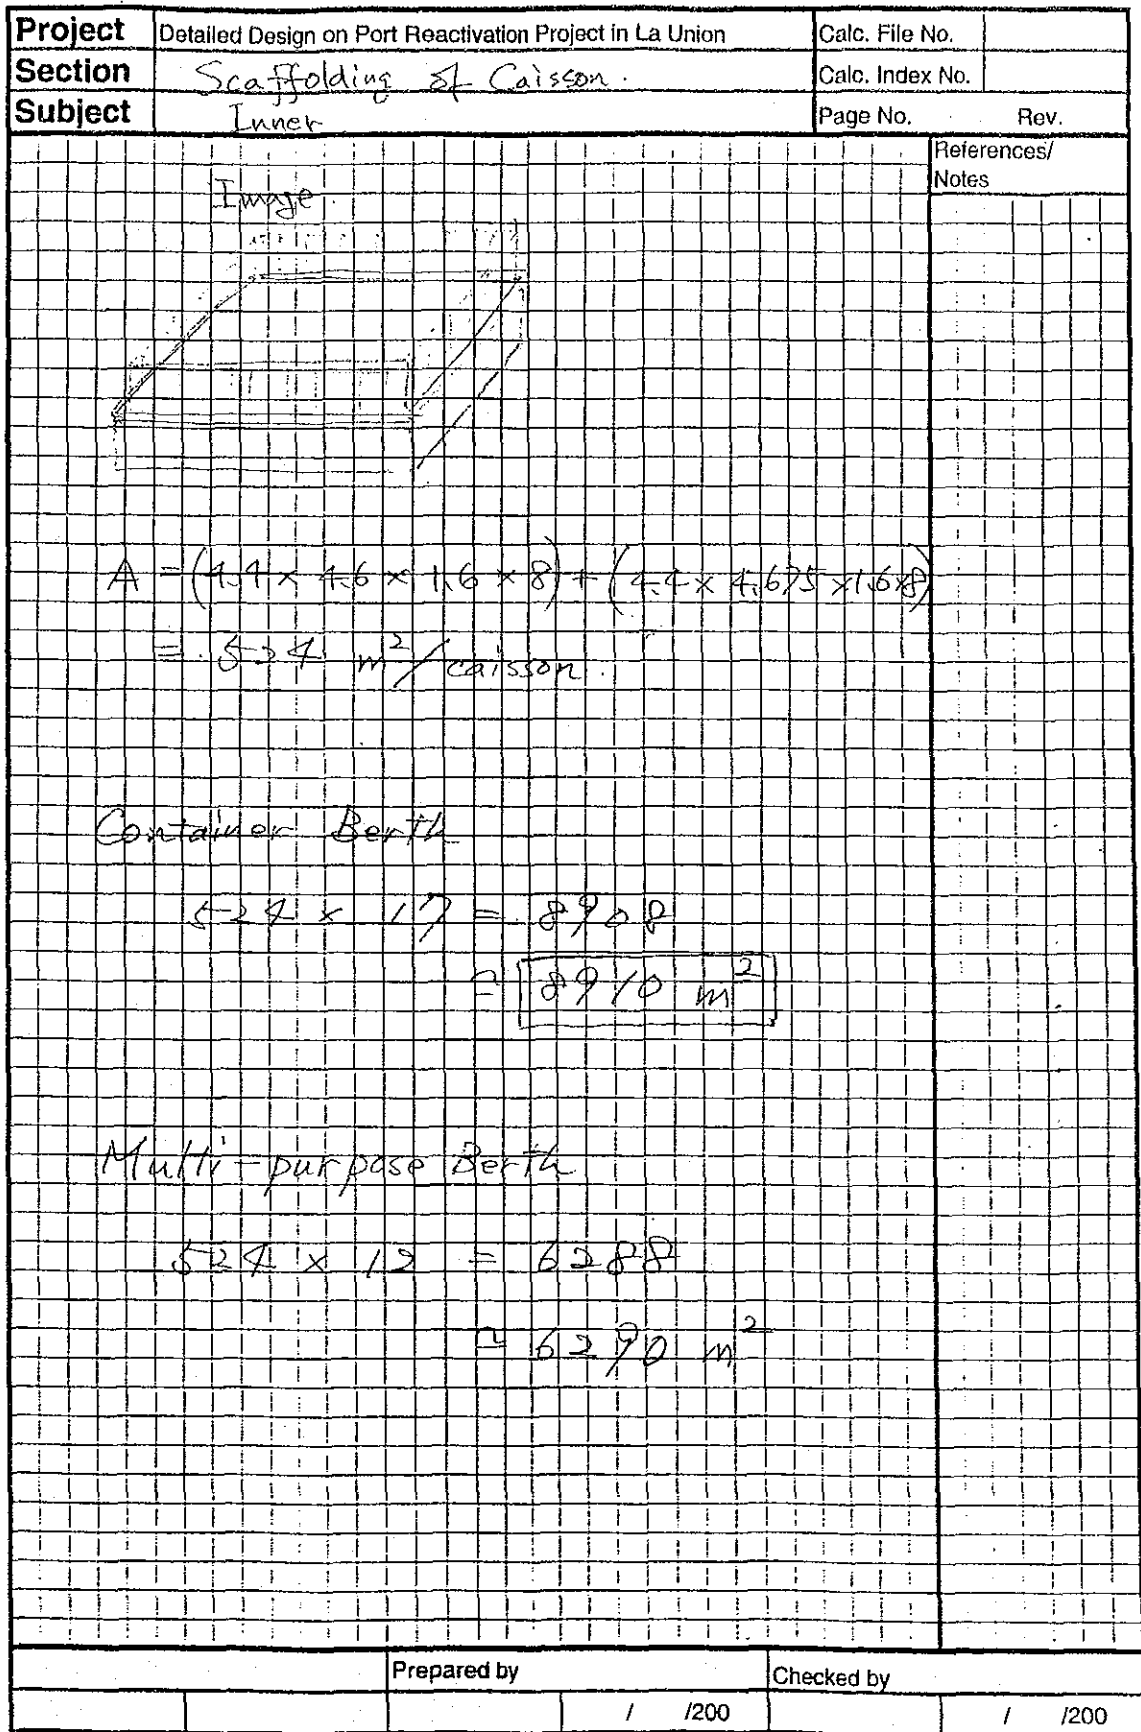 Project Detailed Design on Port Reactivation Project in La Union Calc. File No.
Section Scaffolding of Caisson. Calc. Index No.
Subject Inner Page No. Rev.
References/
Notes
Image.
A = (4.4 x 4.6 x 1.6 x 8) + (4.4 x 4.675 x 1.6 x 8)
= 524 m²/caisson.
Container Berth
524 x 17 = 8908
≒ 8910 m²
Multi-purpose Berth
524 x 12 = 6288
≒ 6290 m²
Prepared by Checked by
/ /200 / /200